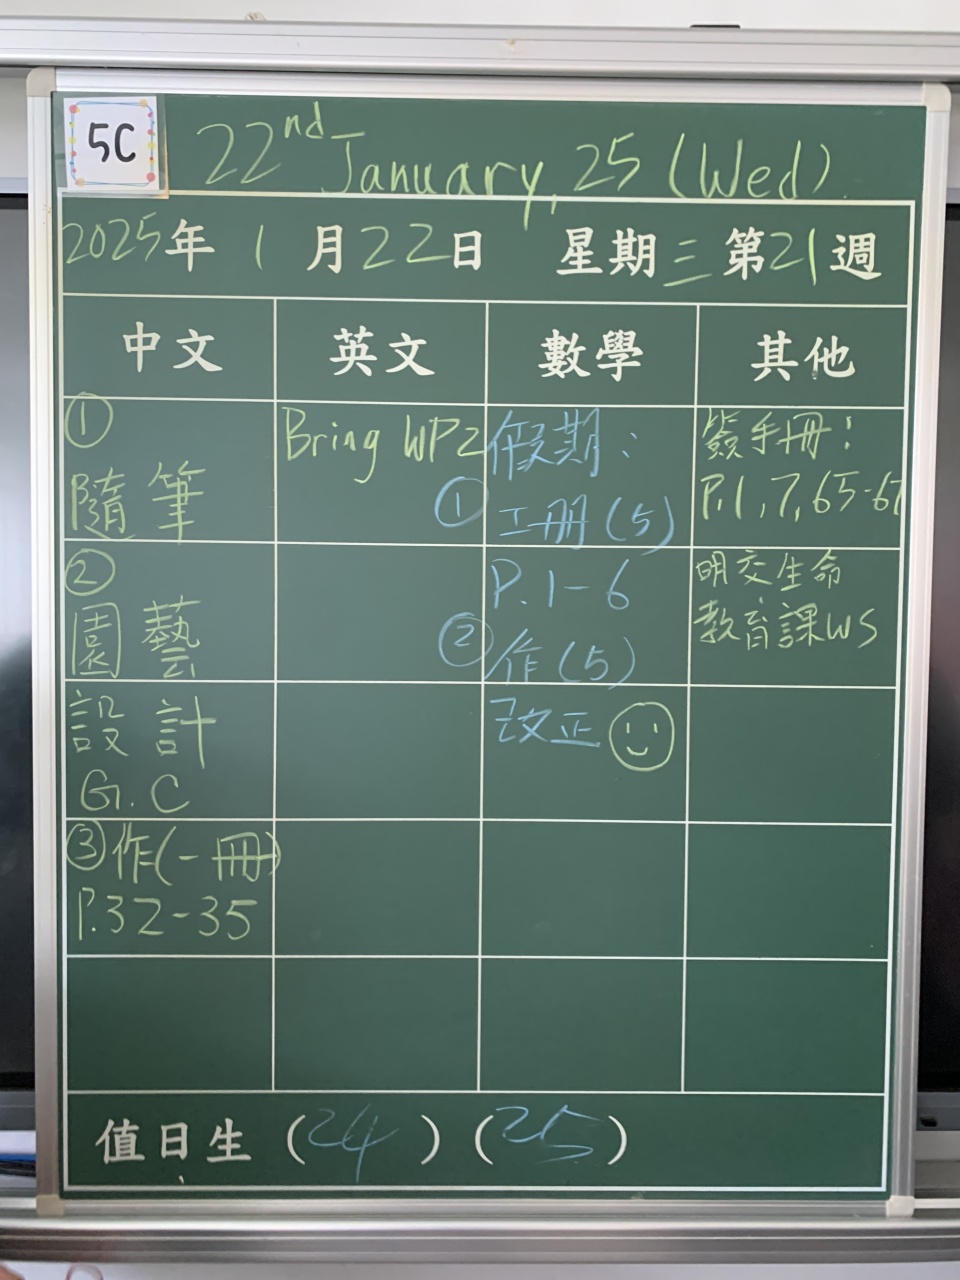 5C
22nd January, 25 (Wed)
2025年 1 月 22 日 星期 三 第 21 週
中文 英文 數學 其他
①
隨筆
②
園藝
設計
G.C
③作(一冊)
P.32-35
Bring WP2
假期:
① 工冊(5)
P.1-6
② 作(5)
改正
簽手冊!
P.1,7,65-67
明交生命
教育課WS
值日生 (24) (25)